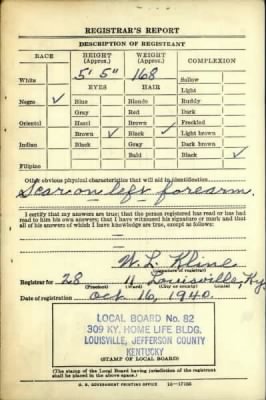 REGISTRAR'S REPORT
DESCRIPTION OF REGISTRANT
RACE HEIGHT (Approx.) WEIGHT (Approx.) COMPLEXION
5' 5" 168
White Sallow
EYES HAIR Light
Negro ✓ Blue Blonde Ruddy
Gray Red Dark
Oriental Hazel Brown Freckled
Brown ✓ Black ✓ Light brown
Indian Black Gray Dark brown
Bald Black ✓
Filipino
Other obvious physical characteristics that will aid in identification
Scar on left forearm.
I certify that my answers are true; that the person registered has read or has had
read to him his own answers; that I have witnessed his signature or mark and that
all of his answers of which I have knowledge are true, except as follows:
W. L. Kline
(Signature of registrar)
Registrar for 28 11 Louisville, Ky
(Precinct) (Ward) (City or county)
Date of registration Oct 16, 1940.
LOCAL BOARD No. 82
309 KY. HOME LIFE BLDG.
LOUISVILLE, JEFFERSON COUNTY
KENTUCKY
(STAMP OF LOCAL BOARD)
(The stamp of the Local Board having jurisdiction of the registrant
shall be placed in the above space.)
U. S. GOVERNMENT PRINTING OFFICE 16—17105